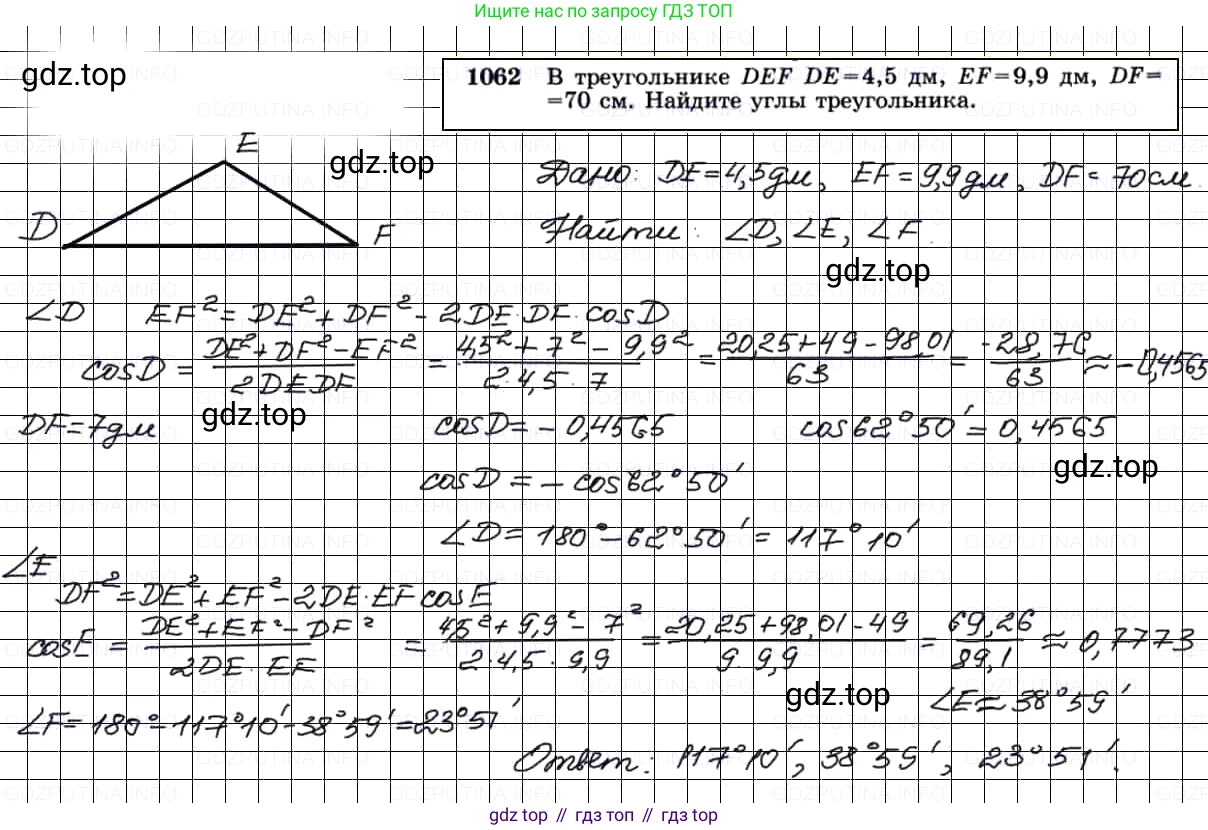 Ищите нас по запросу ГДЗ ТОП
gdz.top
1062 В треугольнике DEF DE=4,5 дм, EF=9,9 дм, DF=
=70 см. Найдите углы треугольника.
E
gdz.top
Дано: DE=4,5дм, EF=9,9дм, DF=70см.
D
F
Найти: ∠D, ∠E, ∠F.
gdz.top
∠D EF²=DE²+DF²-2DE·DF·cosD
cosD = (DE²+DF²-EF²)/(2DE·DF) = (4,5²+7²-9,9²)/(2·4,5·7) = (20,25+49-98,01)/63 = -28,76/63 ≈ -0,4565
DF=7дм
gdz.top
cosD=-0,4565 cos62°50′=0,4565
gdz.top
cosD=-cos62°50′
∠D=180°-62°50′=117°10′
∠E
DF²=DE²+EF²-2DE·EF cosE
cosE = (DE²+EF²-DF²)/(2DE·EF) = (4,5²+9,9²-7²)/(2·4,5·9,9) = (20,25+98,01-49)/(9·9,9) = 69,26/89,1 ≈ 0,7773
gdz.top
∠E≈38°59′
∠F=180°-117°10′-38°59′=23°51′
Ответ: 117°10′, 38°59′, 23°51′.
gdz.top // гдз топ // gdz top
GDZPUTINA.INFO